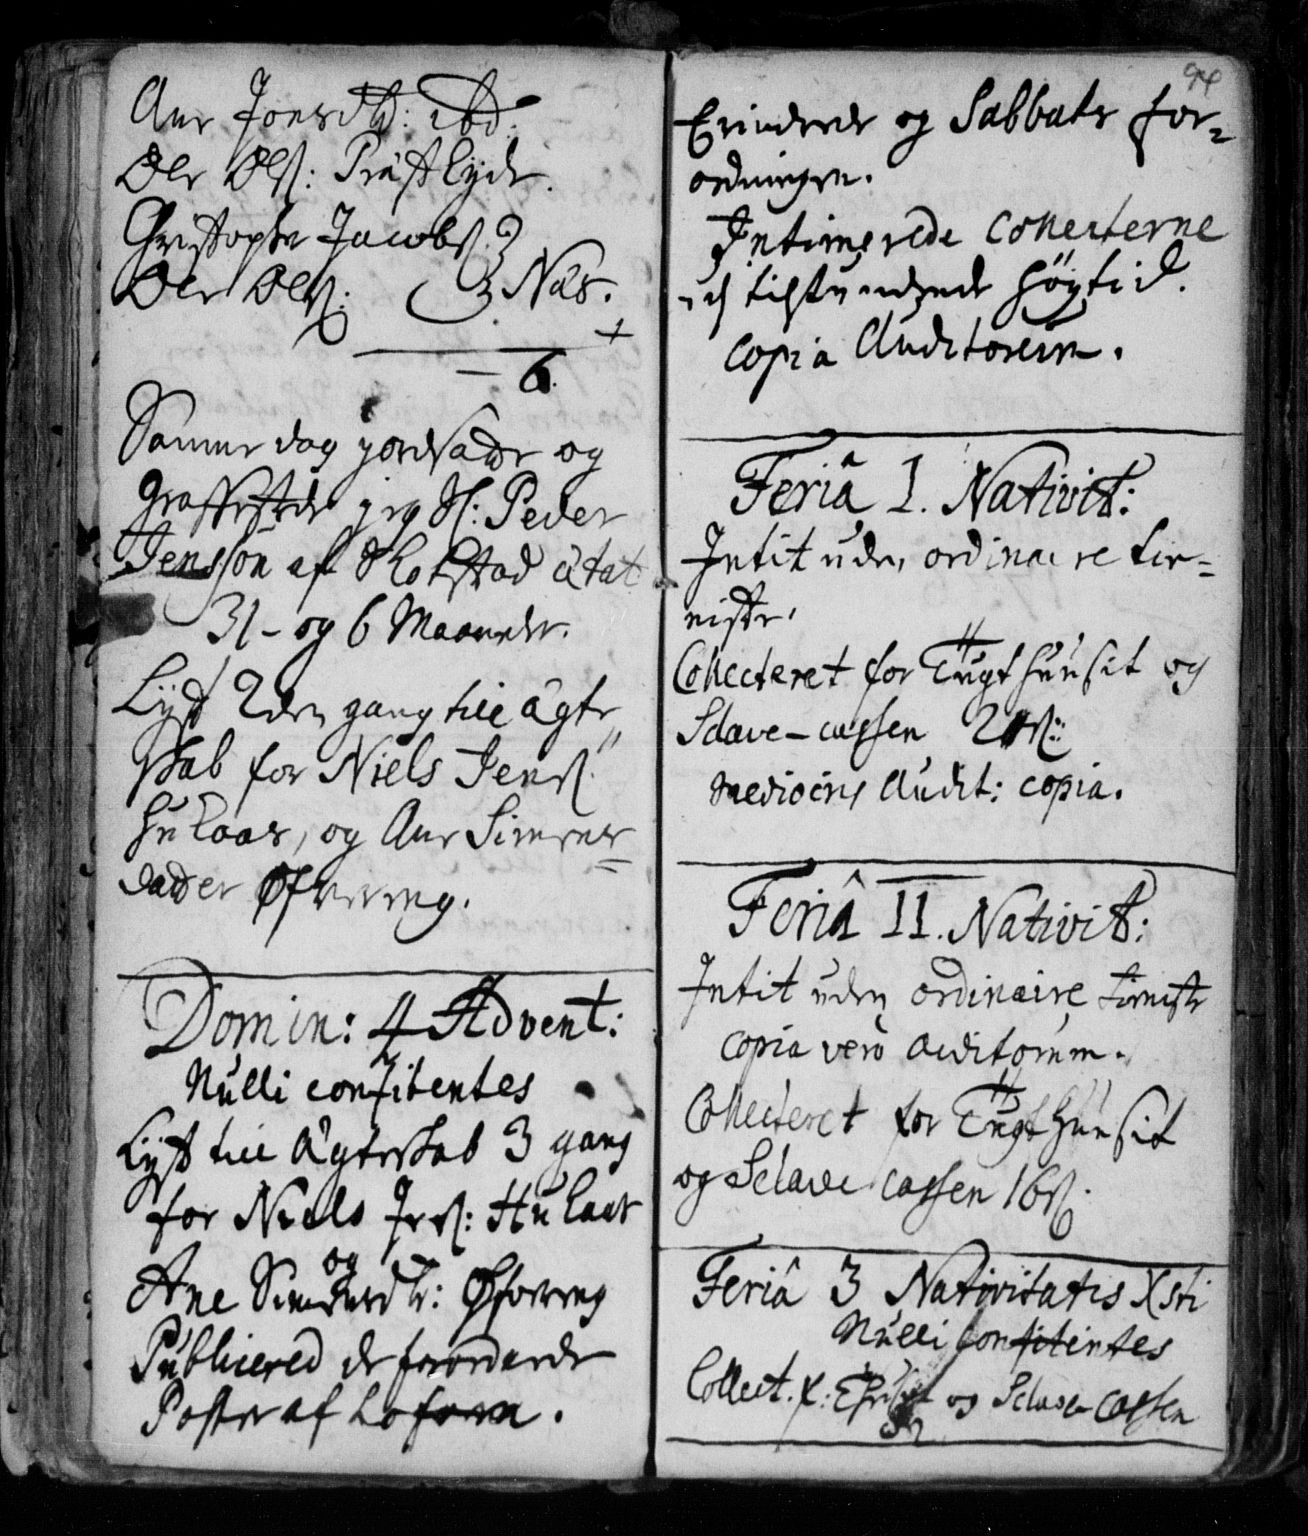 Ane Jonsdtr: ibd:
Ole Ols: Præstlyde.
Christopher Jacobs:
Ole Ols: Næs.
6.
Samme dag jordsatte og
Graffestede jeg Sl: Peder
Jensson af Skotstad ætat
31 - og 6 Maaneder.
Lyst 2den gang till ægte
skab for Niels Jens:
Hulaas, og Ane Simens
datter Øfvereng.
Domin: 4 Advent:
Nulli confitentes
Lyst till Ægteskab 3 gang
for Niels Jens: Hulaas
og
Ane Simensdtr: Øfvereng
Publicered de forordnede
Poster af Lofven.
94
Erindrede og Sabbats for-
ordningen.
Intimerede Collecterne
tilstundende Høytid.
Copia Auditorum.
Feriâ 1. Nativit:
Intit uden ordinaire tie-
niste.
Collecteret for Tugthuusit og
Sclave-cassen 24s:
mediocris Audit: copia.
Feriâ II. Nativit:
Intit uden ordinaire tieniste
copia vero auditorum.
Collecteret for Tugthuusit
og Sclave cassen 16s:
Feriâ 3 Nativitatis Xsti
Nulli confitentes
Collect. f: og Sclave cassen